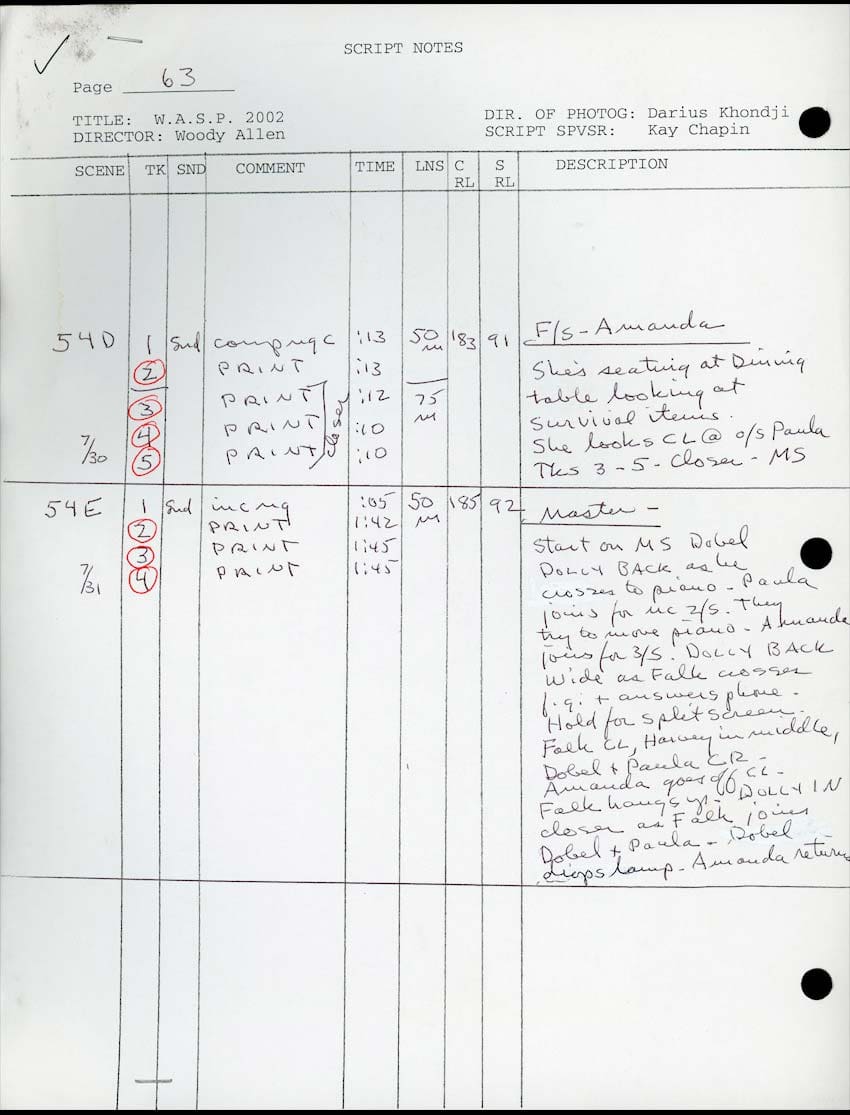 SCRIPT NOTES
Page 63
TITLE: W.A.S.P. 2002
DIRECTOR: Woody Allen
DIR. OF PHOTOG: Darius Khondji
SCRIPT SPVSR: Kay Chapin
SCENE TK SND COMMENT TIME LNS C RL S RL DESCRIPTION
54D 1 Snd comp ng c :13 50 m 183 91 F/s - Amanda
2 PRINT :13
3 PRINT :12 75 m
4 PRINT :10
7/30 5 PRINT :10
closer
She's seating at Dining
table looking at
survival items.
She looks CL @ o/s Paula
Tks 3 - 5 - Closer - MS
54E 1 Snd inc ng :05 50 m 185 92 Master -
2 PRINT 1:42
3 PRINT 1:45
7/31 4 PRINT 1:45
Start on MS Dobel
DOLLY BACK as he
crosses to piano - Paula
joins for 2/s. They
try to move piano - Amanda
joins for 3/s. DOLLY BACK
Wide as Falk crosses
f.g. + answers phone -
Hold for split screen -
Falk CL, Harvey in middle,
Dobel + Paula CR -
Amanda goes off CL -
Falk hangs up - DOLLY IN
closer as Falk joins
Dobel + Paula - Dobel
drops lamp - Amanda returns